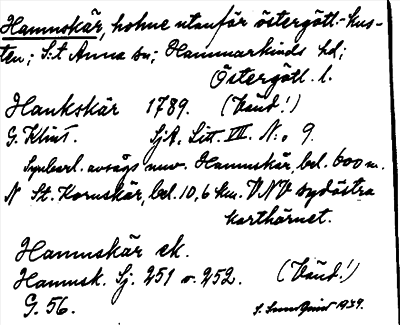 Hamnskär, holme utanför östergötl.-kus-
ten; S:t Anna sn; Hammarkinds hd;
Östergötl. l.
Hamkskär 1789. (Vänd!)
G. Klint. SjA, Litt. VII. N:o 9.
Synbarl. avsågs nuv. Hamnskär, bel. 600 m.
N St. Kornskär, bel. 10,6 km. VNV sydöstra
karthörnet.
Hamnskär ek.
Hamnsk. Sj. 251 o. 252. (Vänd!)
G. 56. 1939.